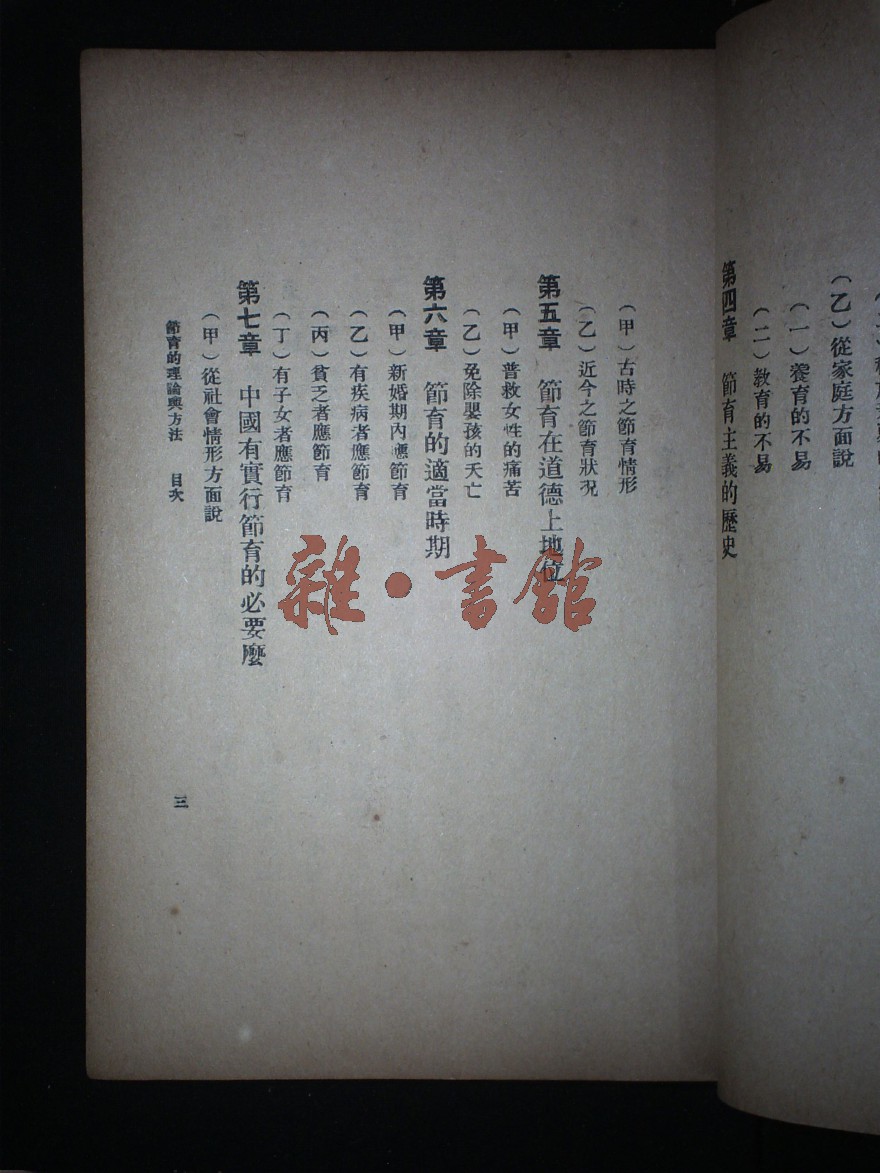 (乙)從家庭方面說
(一)養育的不易
(二)教育的不易
第四章 節育主義的歷史
(甲)古時之節育情形
(乙)近今之節育狀況
第五章 節育在道德上地位
(甲)普救女性的痛苦
(乙)免除嬰孩的夭亡
第六章 節育的適當時期
(甲)新婚期內應節育
(乙)有疾病者應節育
(丙)貧乏者應節育
(丁)有子女者應節育
第七章 中國有實行節育的必要麼
(甲)從社會情形方面說
節育的理論與方法 目次
三
雜·書館